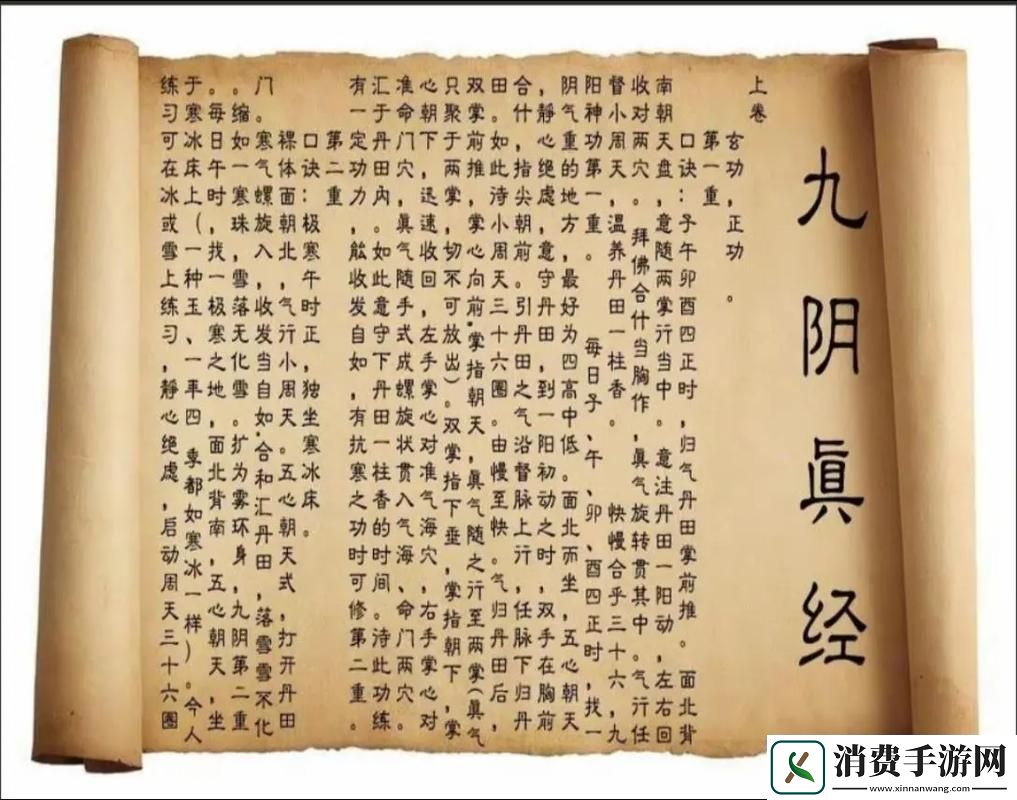 九阴眞经
上卷
玄功,正功。
第一重
口诀:子午卯酉四正时,归气丹田掌前推。面北背
南朝天盘,意随两掌行当中。意注丹田一阳动,左右回
收对两穴。拜佛合什当胸作,眞气旋转贯其中。气行任
督小周天,温养丹田一柱香。快慢合乎三十六,九
阳神功第一重。每日子、午、卯、酉四正时,找一
阴气重的地方,最好为四高中低。面北而坐,五心朝天
,静心绝虑,意守丹田,到一阳初动之时,双手在胸前
合什,指尖朝前。引丹田之气沿督脉上行,任脉下归丹
田。如此待小周天三十六圈。由慢至快。气归丹田后,
双掌前推,掌心向前.掌指朝天,眞气随之行至两掌(眞气
只聚于两掌,切不可放出)。双掌指下垂,掌指朝下,掌
心朝下,迅速收回,左手掌心对准气海穴,右手掌心对
准命门穴,眞气随手式成螺旋状贯入气海、命门两穴。
汇于丹田内。如此意守下丹田一柱香的时间。待此功练
有一定功力,能收发自如,有抗寒之功时可修第二重。
第二重
口诀:极寒午时正,独坐寒冰床。
裸体面朝北,气行小周天。五心朝天式,打开丹田
门。寒气螺旋入,收发当自如.合和汇丹田,落雪雪不化
。缩如一寒珠,雪落无化雪。扩为雾环身,九阴第二重
。每日午时,找一极寒之地,面北背南,五心朝天,坐
于寒冰床上(一种玉、一年四季都如寒冰一样)。今人
练习可在冰或雪上练习,静心绝虑,启动周天三十六圈
消费手游网
www.xinnanwang.com